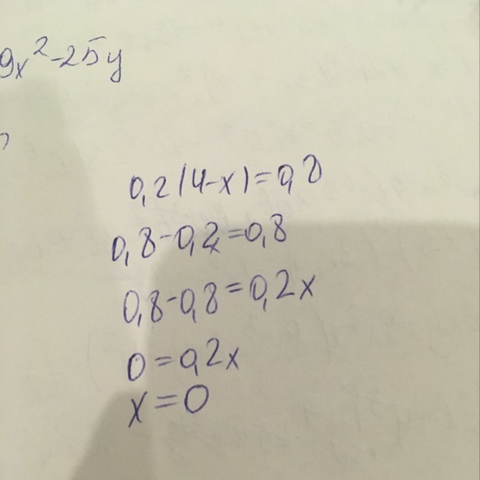 9x²-25y
0,2(4-x)=0,8
0,8-0,2x=0,8
0,8-0,8=0,2x
0=0,2x
x=0